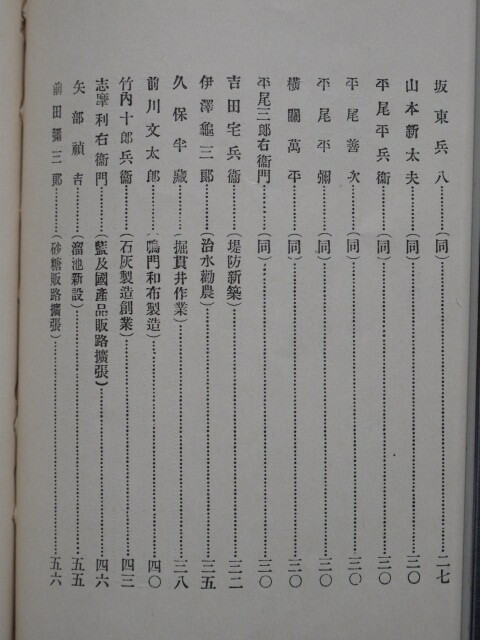 坂東兵八（同）……二七
山本新太夫（同）……三〇
平尾平兵衞（同）……三〇
平尾善次（同）……三〇
平尾平彌（同）……三〇
橫關萬平（同）……三〇
平尾三郎右衞門（同）……三〇
吉田宅兵衞（堤防新築）……三二
伊澤龜三郎（治水勸農）……三五
久保半藏（掘貫井作業）……三八
前川文太郎（鳴門和布製造）……四〇
竹內十郎兵衞（石灰製造創業）……四三
志摩利右衞門（藍及國產品販路擴張）……四六
矢部禎吉（溜池新設）……五五
前田彌三郎（砂糖販路擴張）……五六